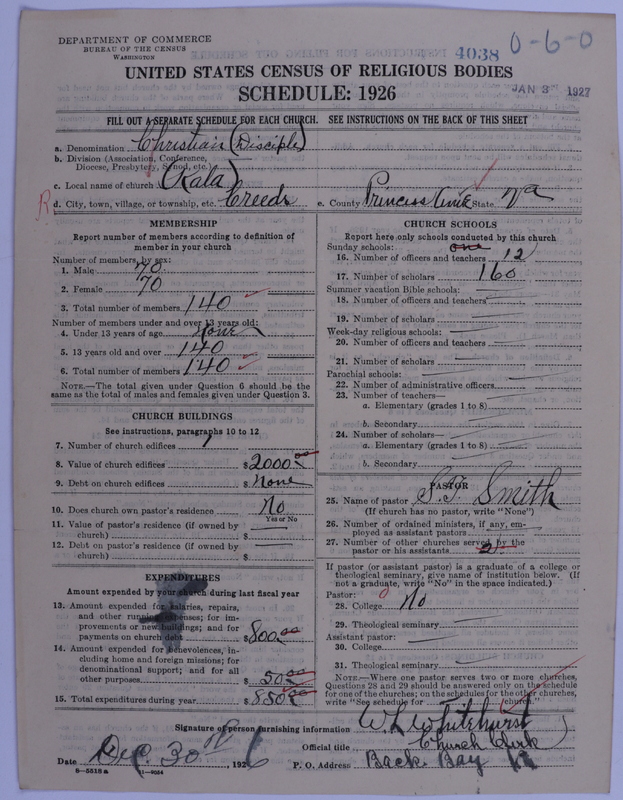 DEPARTMENT OF COMMERCE
BUREAU OF THE CENSUS
WASHINGTON
4038
0-6-0
UNITED STATES CENSUS OF RELIGIOUS BODIES
SCHEDULE: 1926
JAN 3 1927
FILL OUT A SEPARATE SCHEDULE FOR EACH CHURCH. SEE INSTRUCTIONS ON THE BACK OF THIS SHEET
a. Denomination Christian (Disciple)
b. Division (Association, Conference,
Diocese, Presbytery, Synod, etc.)
c. Local name of church (Kala)
R d. City, town, village, or township, etc. Creeds e. County Princess Anne State Va
MEMBERSHIP
Report number of members according to definition of
member in your church
Number of members, by sex:
1. Male 70
2. Female 70
3. Total number of members 140
Number of members under and over 13 years old:
4. Under 13 years of age None
5. 13 years old and over 140
6. Total number of members 140
NOTE.—The total given under Question 6 should be the
same as the total of males and females given under Question 3.
CHURCH BUILDINGS
See instructions, paragraphs 10 to 12
7. Number of church edifices 1
8. Value of church edifices $ 2000.00
9. Debt on church edifices $ None
10. Does church own pastor's residence? No
Yes or No
11. Value of pastor's residence (if owned by
church) $
12. Debt on pastor's residence (if owned by
church) $
EXPENDITURES
Amount expended by your church during last fiscal year
13. Amount expended for salaries, repairs,
and other running expenses; for im-
provements or new buildings; and for
payments on church debt $ 800.00
14. Amount expended for benevolences, in-
cluding home and foreign missions; for
denominational support; and for all
other purposes $ 50.00
15. Total expenditures during year $ 850.00
CHURCH SCHOOLS
Report here only schools conducted by this church
Sunday schools: one
16. Number of officers and teachers 12
17. Number of scholars 160
Summer vacation Bible schools:
18. Number of officers and teachers
19. Number of scholars
Week-day religious schools:
20. Number of officers and teachers
21. Number of scholars
Parochial schools:
22. Number of administrative officers
23. Number of teachers—
a. Elementary (grades 1 to 8)
b. Secondary
24. Number of scholars—
a. Elementary (grades 1 to 8)
b. Secondary
PASTOR
25. Name of pastor S. T. Smith
(If church has no pastor, write "None")
26. Number of ordained ministers, if any, em-
ployed as assistant pastors
27. Number of other churches served by the
pastor or his assistants 2
If pastor (or assistant pastor) is a graduate of a college or
theological seminary, give name of institution below. (If
not a graduate, write "No" in the space indicated.)
Pastor:
28. College No
29. Theological seminary
Assistant pastor:
30. College
31. Theological seminary
NOTE.—Where one pastor serves two or more churches,
Questions 28 and 29 should be answered only on the schedule
for one of the churches; on the schedules for the other churches,
write "See schedule for (church)."
Signature of person furnishing information W. L. Whitehurst
Official title Church Clerk
Date Dec. 30 1926 P. O. Address Back Bay Va
8—5518a 11—9054